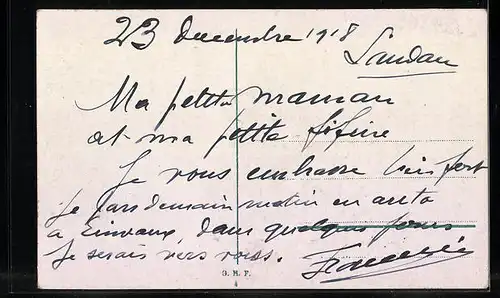 23 Decembre 1918
Landau
Ma petite maman
et ma petite fifine
Je vous embrasse bien fort
Je pars demain matin en auto
a Einvaux, dans quelques jours
Je serais vers vous.
G. H. F.